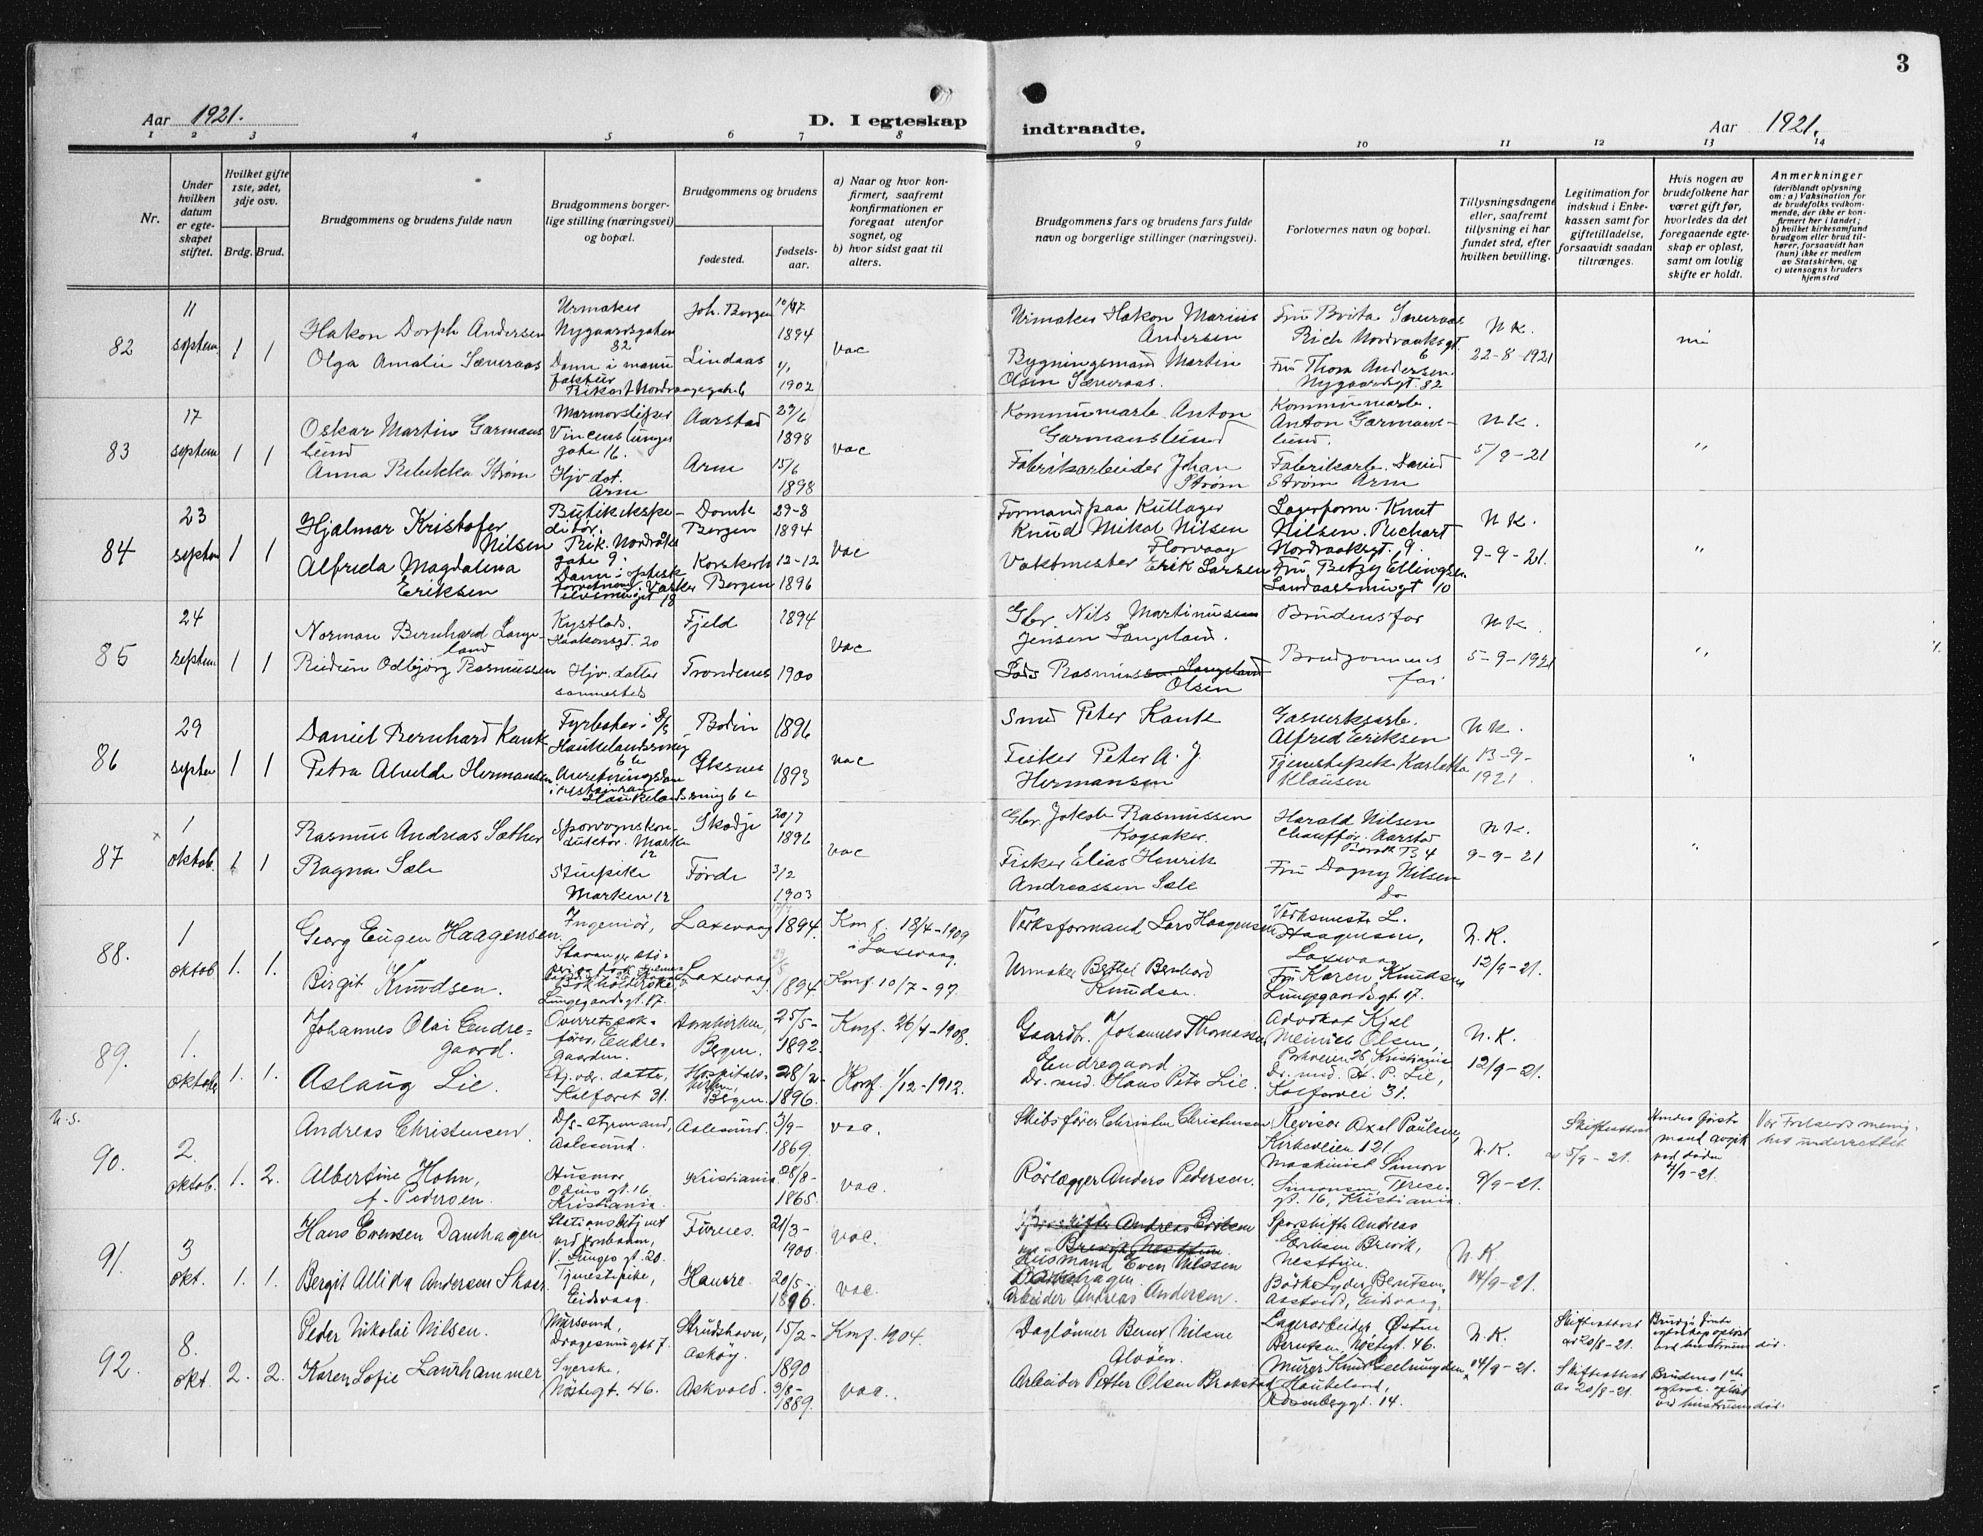 3
Aar 1921.
D. I egteskap
indtraadte.
Aar 1921.
1 2 3 4 5 6 7 8
9 10 11 12 13 14
Nr.
Under hvilken datum er egteskapet stiftet.
Hvilket gifte 1ste, 2det, 3dje osv.
Brdg. Brud.
Brudgommens og brudens fulde navn
Brudgommens borgerlige stilling (næringsvei) og bopæl.
Brudgommens og brudens
fødested.
fødselsaar.
a) Naar og hvor konfirmert, saafremt konfirmationen er foregaat utenfor sognet, og
b) hvor sidst gaat til alters.
Brudgommens fars og brudens fars fulde navn og borgerlige stillinger (næringsvei).
Forlovernes navn og bopæl.
Tillysningsdagene eller, saafremt tillysning ei har fundet sted, efter hvilken bevilling.
Legitimation for indskud i Enkekassen samt for giftetilladelse, forsaavidt saadan tiltrænges.
Hvis nogen av brudefolkene har været gift før, hvorledes da det foregaaende egteskap er opløst, samt om lovlig skifte er holdt.
Anmerkninger
(deriblandt oplysning om: a) Vaksination for de brudefolks vedkommende, der ikke er konfirmert her i landet; b) hvilket kirkesamfund brudgom eller brud tilhører, forsaavidt han (hun) ikke er medlem av Statskirken, og c) utensogns bruders hjemsted
82
11 septem.
1 1
Hakon Dorph Andersen
Olga Amalie Sæveraas
Urmaker
Nygaardsgaten
82
Joh. Bergen
1894
Lindaas
1/1
1902
vac
Urmaker Hakon Marius
Andersen
Bygningsmand Martin
Olsen Sæveraas.
Fru Brita Sæveraas
Rich Nordraaksgt.
6
Fru Thora Andersen
Nygaardsgt. 82
N.K.
22-8-1921
83
17 septem
1 1
Oskar Martin Garmans
lund
Anna Rebekka Strøm
Marmorsliper
gate 16.
Hjv. dat.
Arne
Aarstad
29/6
1898
Arne
15/6
1898
vac
Kommunearb. Anton
Garmanslund
Fabrikarbeider Johan
Strøm
Kommunearb.
Anton Garmans-
lund.
Fabrikarb. David
Strøm Arne
N.K.
5/9-21
"
84
23 septem
1 1
Hjalmar Kristofer
Nilsen
Alfreda Magdalena
Eriksen
Butikekspe-
ditør.
Rik. Nordråks
gate 9.
Domk
Bergen
29-8
1894
Korskirk
Bergen
12-12
1896
vac
Formand paa Kullager
Knud Mikal Nilsen
Florvaag
Vaktmester Erik Larsen
Lagerform. Knut
Nilsen. Richart
Nordraaksgt. 9.
Fru Betzy Ellingsen
Landaassvingt 10
N.K.
9-9-21.
"
85
24 septem.
1 1
Norman Bernhard Lange-
land
Reidun Odbjørg Rasmussen
Kystlods.
Haakonsgt. 20
Hjv. datter
sammesteds
Fjeld
1894
Trondenes
1900
vac
Gbr. Nils Martinussen
Jensen Langeland.
Lods Rasmussen Langeland
Olsen
Brudens far
Brudgommens
far
N.K.
5-9-1921
"
86
29 septem
1 1
Daniel Bernhard Kank
Petra Alvelde Hermansen
Fyrbøter i D/S
Haukelandssving
6a
Bodin
1896
Øksnes
1893
vac
Smed Peter Kank
Fisker Peter A. J.
Hermansen
Gasverksarb.
Alfred Eriksen
Tjenestepike Karlotta
Klausen
N.K.
13-9-
1921.
"
87
1 oktob.
1 1
Rasmus Andreas Sæther
Ragna Sæle
Sporvognskon-
duktør. Marken
12
Stuepike
Marken 12
Skodje
20/7
1896
Førde
3/2
1903
vac
Gbr. Jakob Rasmussen
Fisker Elias Henrik
Andreassen Sæle
Harald Nilsen
Chauffør. Aarstad
Barak B 4
Fru Dagny Nilsen
Do
N.K.
9-9-21
"
88.
1 oktob
1. 1.
Georg Eugen Haagensen
Birgit Knudsen.
Ingeniør,
Lungegaardsgt. 17.
Laxevaag
1894.
Laxevaag
1894
Konf. 18/4-1909
i Laxevaag.
Konf. 10/7-97.
Verksformand Lars Haagensen
Urmaker Berthel Bernhard
Knudsen.
Verksmestr L.
Haagensen,
Laxevaag
Fru Karen Knudsen
Lungegaardsgt. 17.
N.K.
12/9-21.
89.
1. oktob
1. 1.
Johannes Olai Endre-
gaard.
Aslaug Lie.
Overretssak-
fører, Endre-
gaarden.
Hj.vær. datter,
Kalfaret 31.
Domkirken,
Bergen.
25/5-
1892.
Hospitals-
kirken,
Bergen.
28/2-
1896.
Konf. 26/4-1908.
Konf. 1/12-1912.
Gaardbr. Johannes Thomassen
Endregaard
Dr. med. Hans Petr Lie.
Advokat Kjel
Meinich Olsen,
Parkveien 25 Kristiania
Dr. med. H. P. Lie,
Kalfarvei 31.
N.K.
12/9-21.
U.S.
90.
2. oktob.
1. 2.
Andreas Christensen.
Albertine Hohn,
f. Pedersen.
D/s-styrmand,
Aalesund.
Husmor
gt. 16
Kristiania.
Aalesund.
3/9-
1869.
Kristiania
28/8-
1865.
vac.
vac.
Skibsfører Christen Christensen
Rørlægger Anders Pedersen.
Revisor Axel Paulsen,
Kirkeveien 121
Maskinist Simon
Simonsen, Terese-
gt. 16, Kristiania.
N.K.
9/9-21.
Skifteattest
av 5/9-21.
Hendes første
mand avgik
ved døden
Vor Frelsers menig-
het underrettet
91.
3 okt.
1. 1.
Hans Evensen Damhagen
Bergit Allida Andersen Skaar.
Stationsbetjent
ved jernbanen,
V. Lungegt. 20.
Tjenestepike,
Eidsvaag.
Furnes.
21/3-
1900.
Hamre.
20/5-
1896.
vac.
vac.
Sporskifter Andreas Eriksen
Brevik Nesttun.
Husmand Even Nilssen
Damhagen
Arbeider Andreas Andersen.
Sporskifte Andreas
Eriksen Brevik,
Nesttun.
Eidsvaag.
N.K.
14/9-21.
92.
8. okt.
2. 2.
Peder Nikolai Nilsen.
Karen Sofie Laurhammer
Mursvend,
Syerske,
Nøstegt. 46.
Strudshavn,
Askøy.
15/2-
1890
Askvold.
9/8-
1889.
Konf. 1904.
vac.
Daglønner Bernt Nilsen
Alvøen.
Arbeider Petter Olsen Brakstad
Lagerarbeider Østen
Berntsen, Nøstegt. 46.
Haukeland,
Rosenberggt. 14.
N.K.
14/9-21.
Skifteattest
av 20/8-21.
Skifteattest
av 20/8-21.